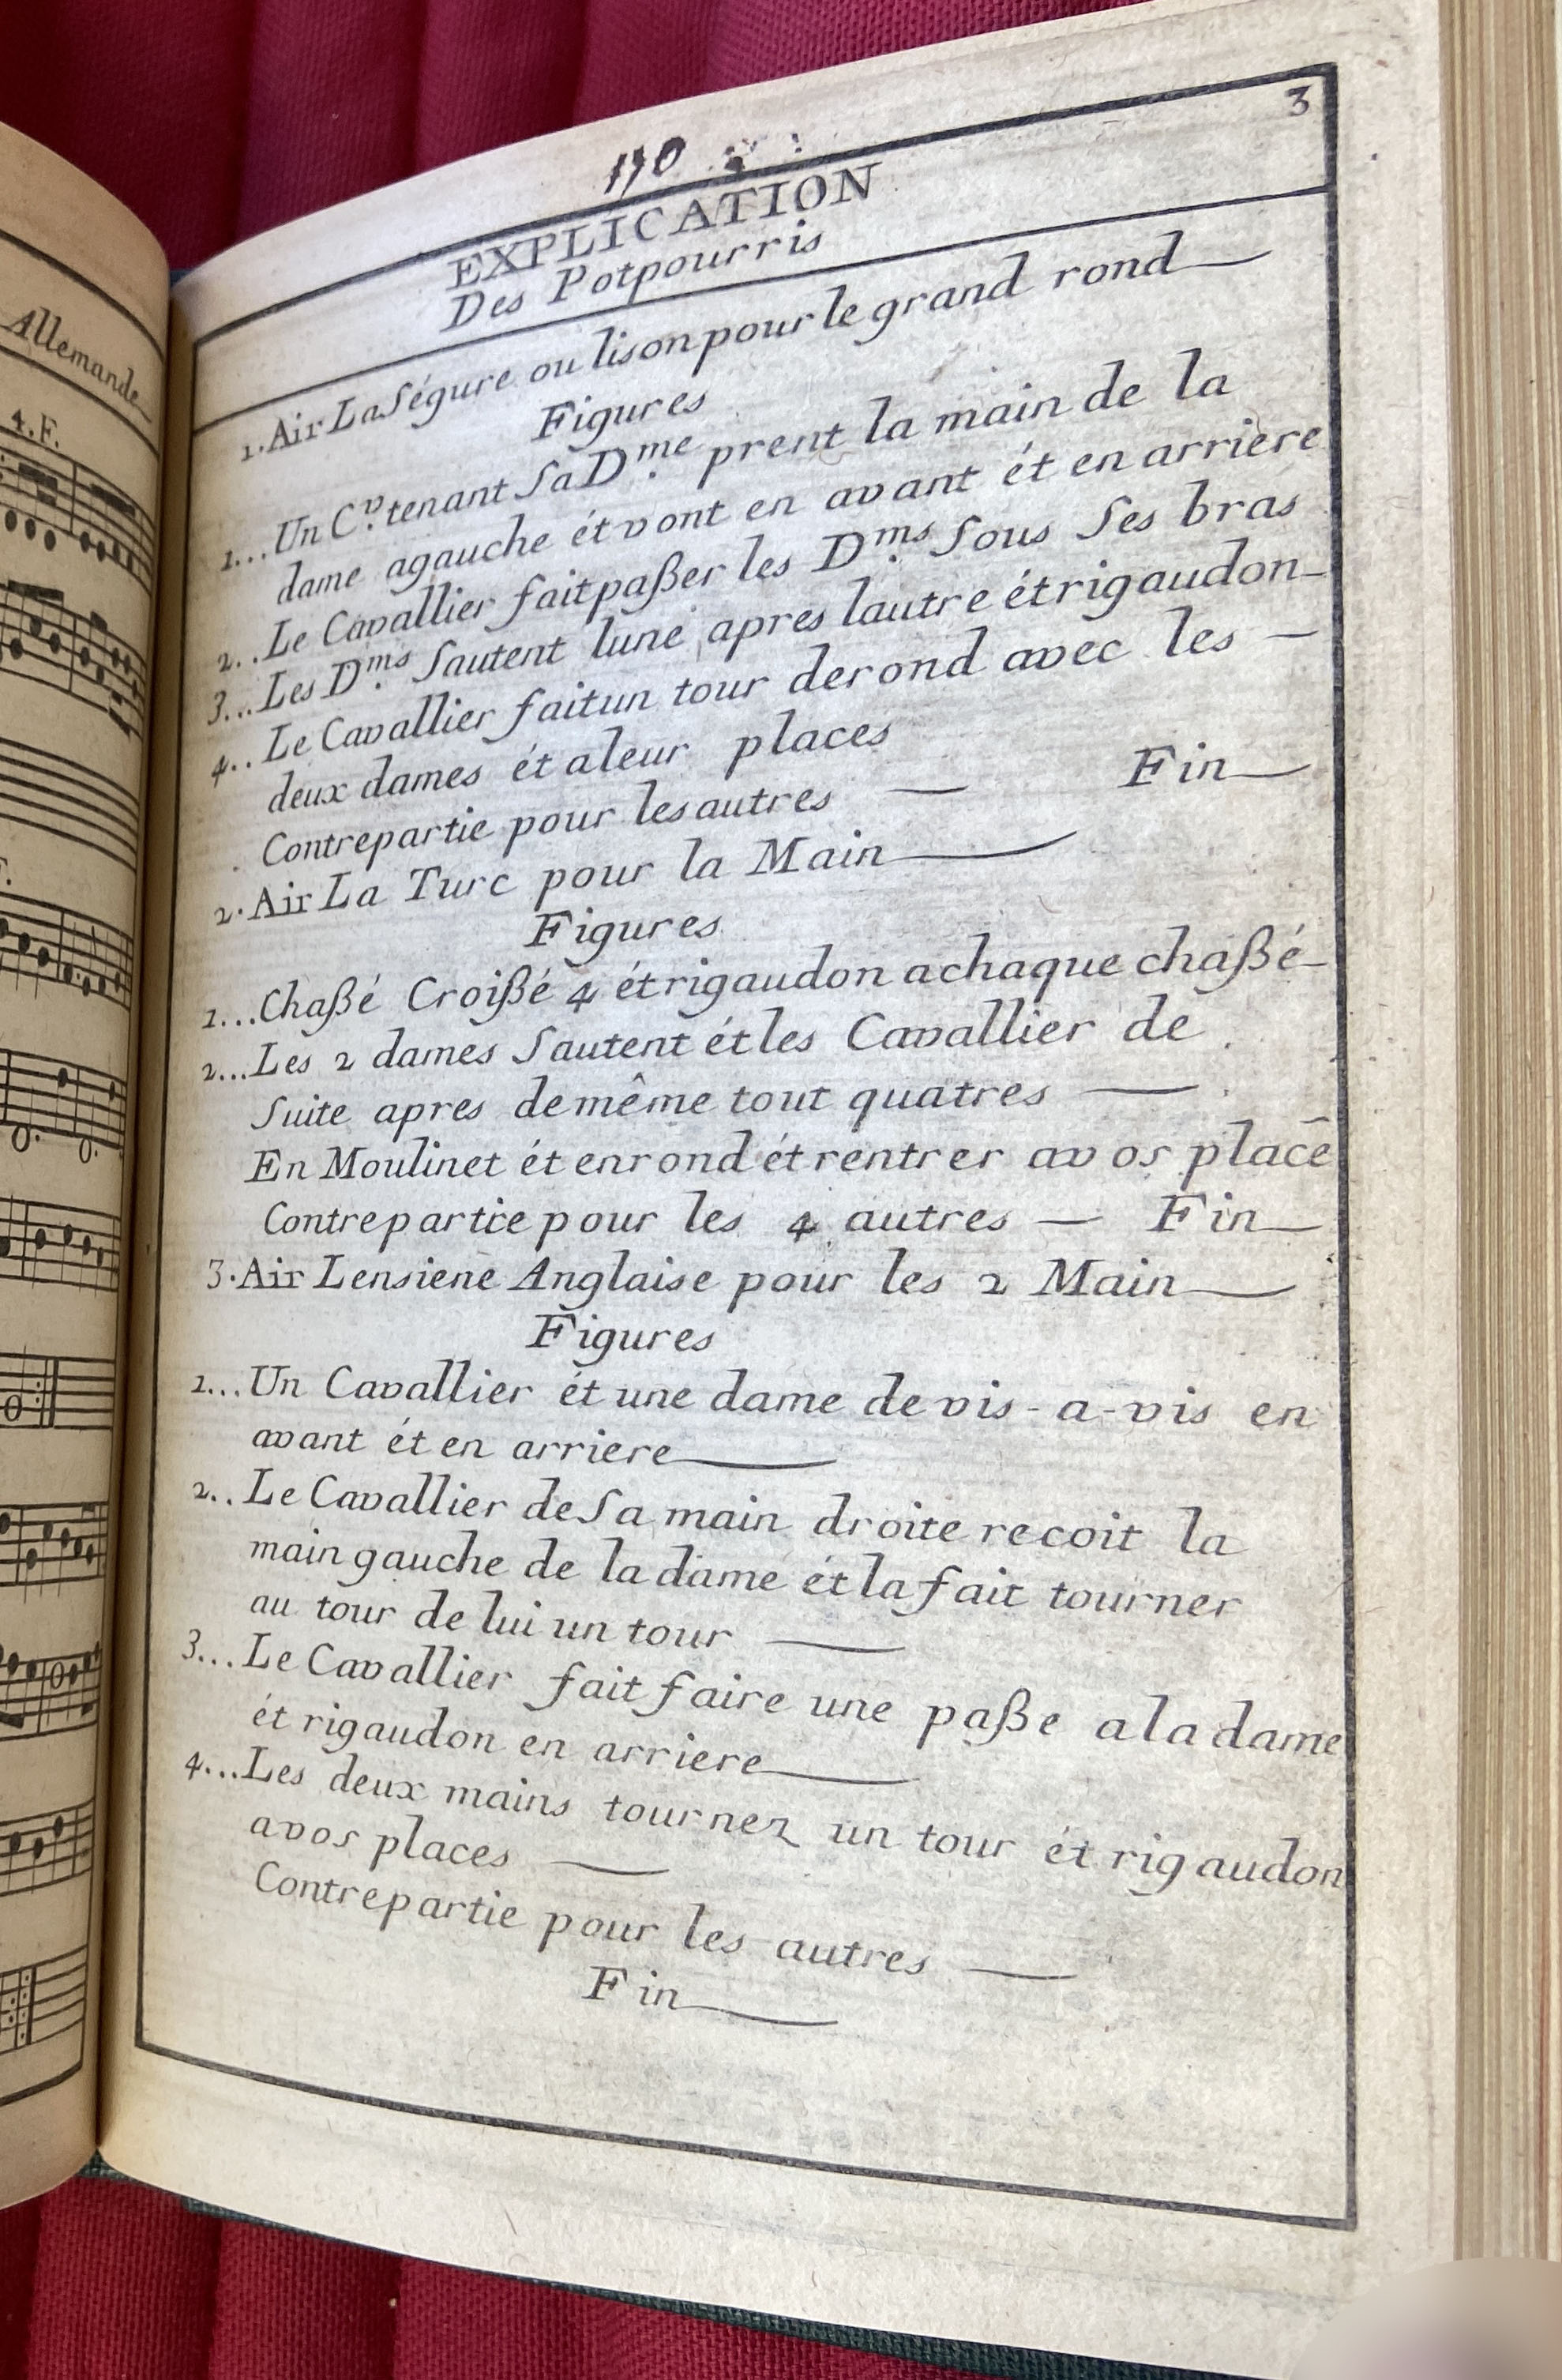 Allemande
4.F.
3
190
EXPLICATION
Des Potpourris
1. Air La Ségure ou lison pour le grand rond
Figures
1... Un Cv. tenant Sa Dme. prent la main de la
dame agauche ét vont en avant ét en arriere
2.. Le Cavallier fait paßer les Dms. Sous Ses bras
3... Les Dms. Sautent lune apres lautre ét rigaudon
4.. Le Cavallier fait un tour de rond avec les
deux dames ét a leur places
Contrepartie pour les autres — Fin
2. Air La Turc pour la Main
Figures
1... Chaßé Croißé 4 ét rigaudon a chaque chaßé
2... Les 2 dames Sautent ét les Cavallier de
Suite apres de même tout quatres
En Moulinet ét en rond ét rentrer a vos place
Contrepartie pour les 4 autres — Fin
3. Air Lensiene Anglaise pour les 2 Main
Figures
1... Un Cavallier ét une dame de vis-a-vis en
avant ét en arriere
2.. Le Cavallier de Sa main droite recoit la
main gauche de la dame ét la fait tourner
au tour de lui un tour
3... Le Cavallier fait faire une paße a la dame
ét rigaudon en arriere
4... Les deux mains tournez un tour ét rigaudon
a vos places
Contrepartie pour les autres
Fin